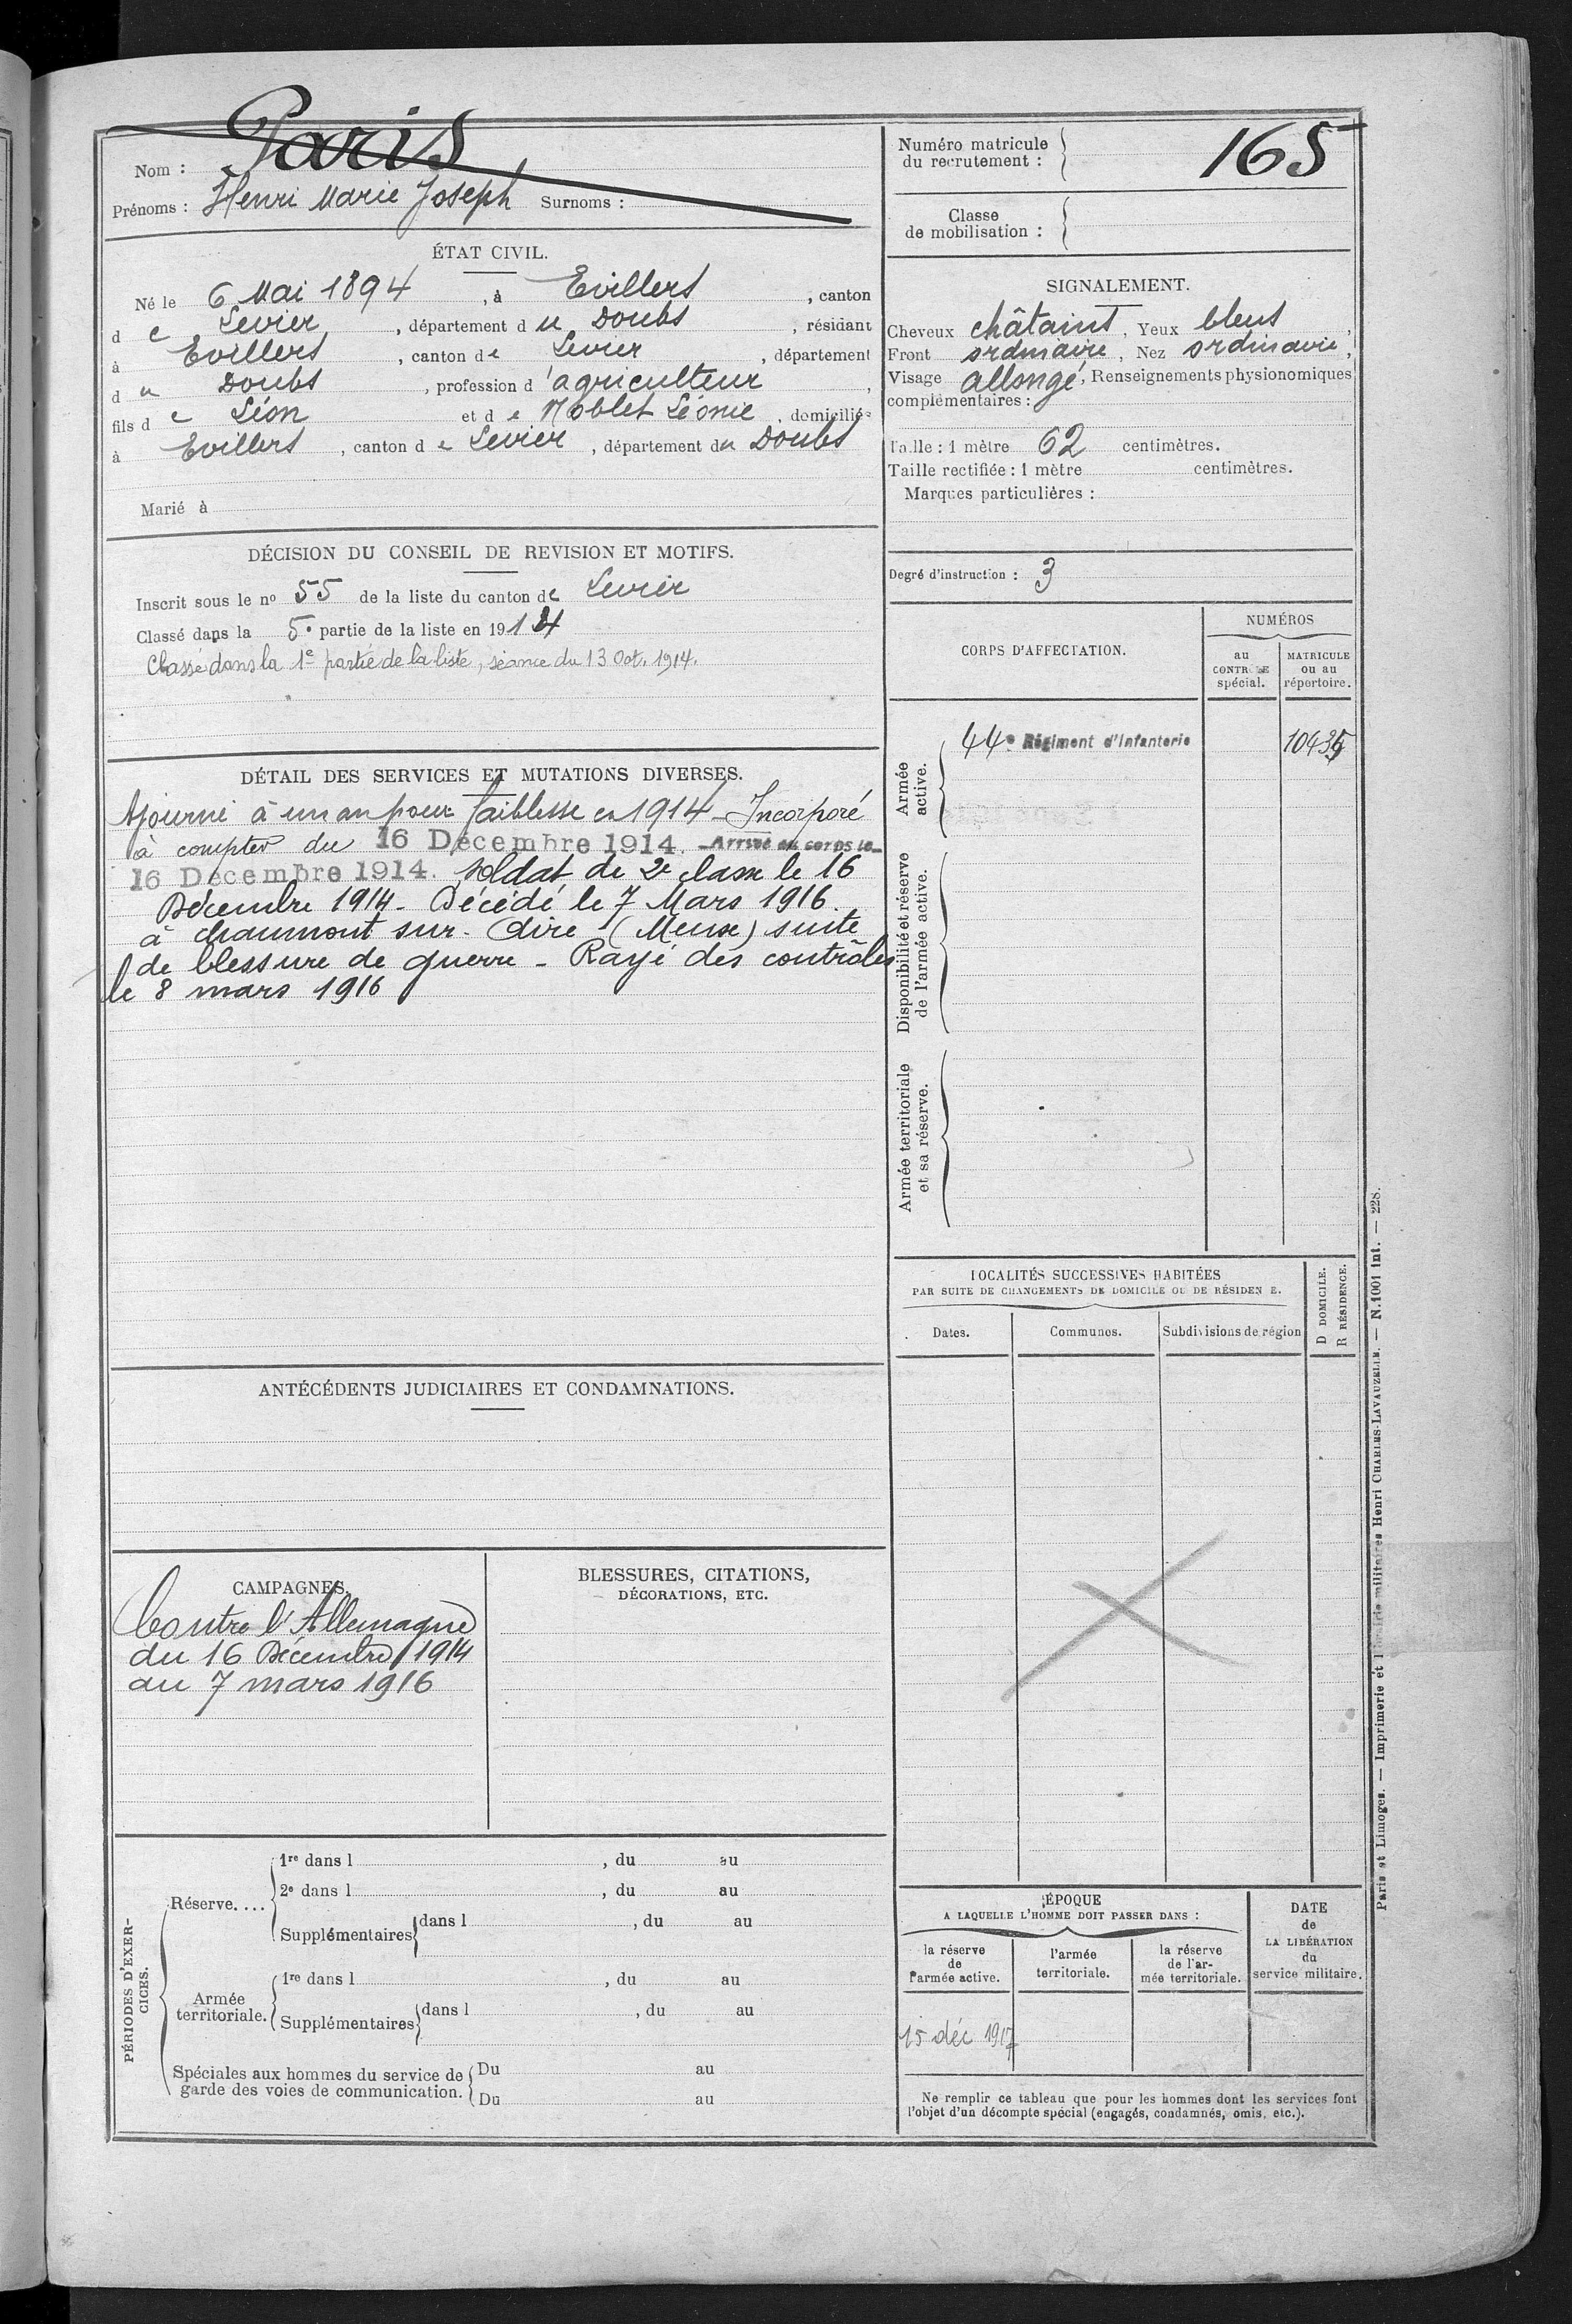 Paris
Nom :
Prénoms : Henri Marie Joseph Surnoms :
Numéro matricule
du recrutement :
165
Classe
de mobilisation :
ÉTAT CIVIL.
Né le 6 Mai 1894, à Evillers, canton
de Levier, département du Doubs, résidant
à Evillers, canton de Levier, département
du Doubs, profession d'agriculteur,
fils de Léon et de Noblet Léonie, domiciliés
à Evillers, canton de Levier, département du Doubs
Marié à
SIGNALEMENT.
Cheveux châtains, Yeux bleus,
Front ordinaire, Nez ordinaire,
Visage allongé, Renseignements physionomiques
complémentaires :
Taille : 1 mètre 62 centimètres.
Taille rectifiée : 1 mètre centimètres.
Marques particulières :
DÉCISION DU CONSEIL DE REVISION ET MOTIFS.
Inscrit sous le no 55 de la liste du canton de Levier
Classé dans la 5e partie de la liste en 1914
Classé dans la 1e partie de la liste, séance du 13 Oct. 1914.
Degré d'instruction : 3
CORPS D'AFFECTATION.
NUMÉROS
au
CONTROLE
spécial.
MATRICULE
ou au
répertoire.
Armée
active.
44e Régiment d'Infanterie
Disponibilité et réserve
de l'armée active.
Armée territoriale
et sa réserve.
DÉTAIL DES SERVICES ET MUTATIONS DIVERSES.
Ajourné à un an pour faiblesse en 1914 - Incorporé
à compter du 16 Décembre 1914. Arrivé au corps le
16 Décembre 1914. soldat de 2e classe le 16
Décembre 1914 - Décédé le 7 Mars 1916
à chaumont sur-Aire (Meuse) suite
de blessure de guerre - Rayé des contrôles
le 8 mars 1916
LOCALITÉS SUCCESSIVES HABITÉES
PAR SUITE DE CHANGEMENTS DE DOMICILE OU DE RÉSIDEN E.
Dates.
Communes.
Subdivisions de région
D DOMICILE.
R RÉSIDENCE.
ANTÉCÉDENTS JUDICIAIRES ET CONDAMNATIONS.
CAMPAGNES.
Contre l'Allemagne
du 16 Décembre 1914
au 7 mars 1916
BLESSURES, CITATIONS,
DÉCORATIONS, ETC.
PÉRIODES D'EXER-
CICES.
Réserve....
1re dans l , du au
2e dans l , du au
Supplémentaires dans l , du au
Armée
territoriale.
1re dans l , du au
Supplémentaires dans l , du au
Spéciales aux hommes du service de
garde des voies de communication.
Du au
Du au
ÉPOQUE
A LAQUELLE L'HOMME DOIT PASSER DANS :
la réserve
de
l'armée active.
l'armée
territoriale.
la réserve
de l'ar-
mée territoriale.
DATE
de
LA LIBÉRATION
du
service militaire.
15 déc 1917
Ne remplir ce tableau que pour les hommes dont les services font
l'objet d'un décompte spécial (engagés, condamnés, omis, etc.).
Paris et Limoges. — Imprimerie et librairie militaires Henri CHARLES-LAVAUZELLE. — N.1001 int. — 228.